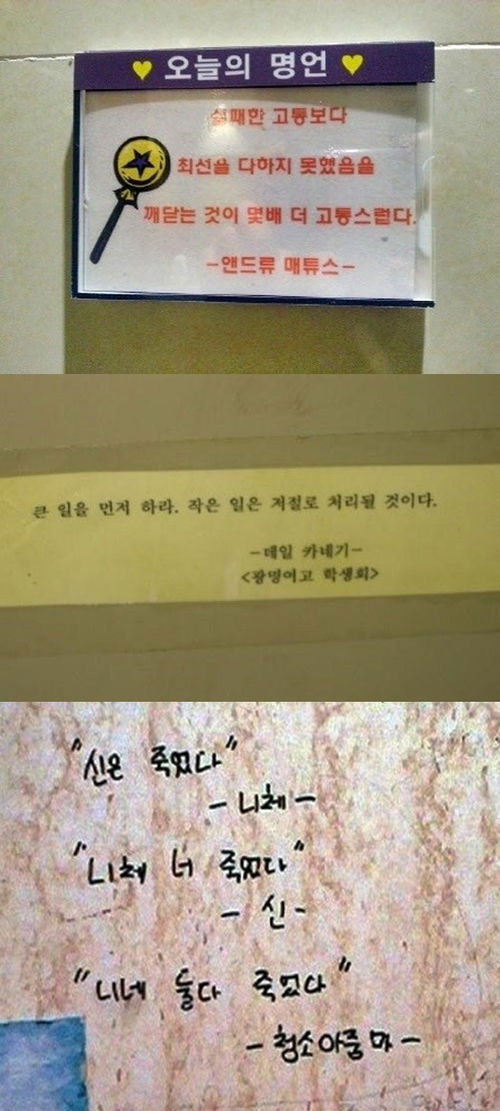 오늘의 명언
실패한 고통보다
최선을 다하지 못했음을
깨닫는 것이 몇배 더 고통스럽다.
-앤드류 매튜스-
큰 일을 먼저 하라. 작은 일은 저절로 처리될 것이다.
-데일 카네기-
<광명여고 학생회>
"신은 죽었다"
- 니체 -
"니체 너 죽었다"
- 신 -
"니네 둘다 죽었다"
- 청소아줌마 -